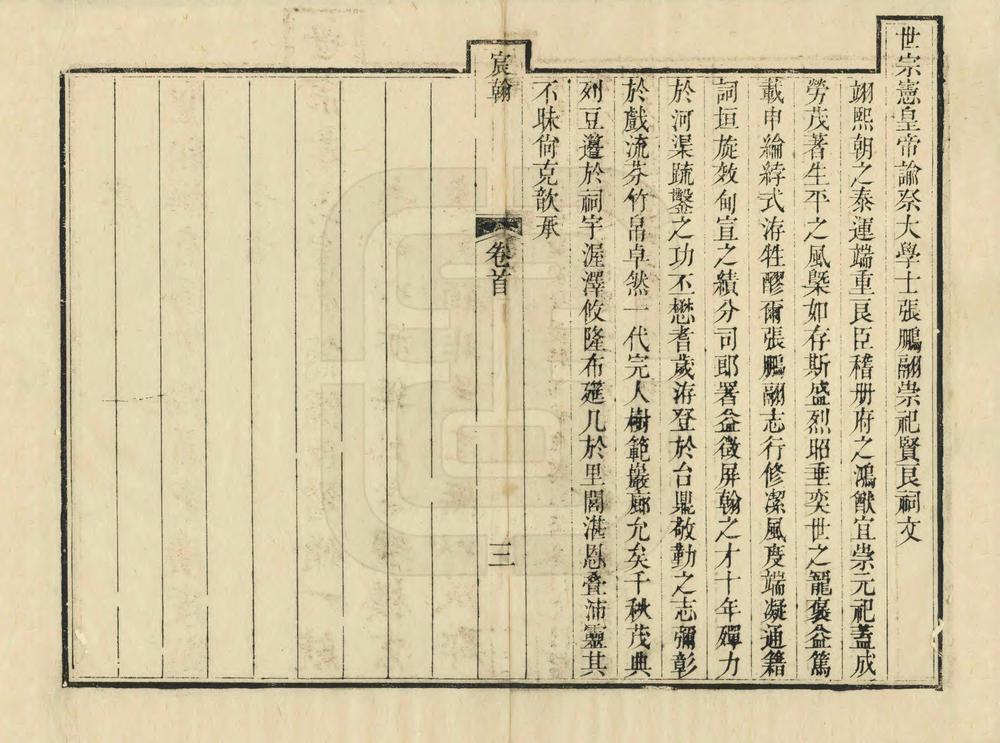 世宗憲皇帝諭祭大學士張鵬翮崇祀賢良祠文
翊熙朝之泰運端重良臣稽册府之鴻猷宜崇元祀蓋成
勞茂著生平之風槩如存斯盛烈昭垂奕世之寵褒益篤
載申綸綍式洊牲醪爾張鵬翮志行修潔風度端凝通籍
詞垣旋效旬宣之績分司郎署益徵屏翰之才十年殫力
於河渠䟽鑿之功丕懋耆歲洊登於台鼎敬勤之志彌彰
於戲流芬竹帛卓然一代完人樹範巖廊允矣千秋茂典
列豆籩於祠宇渥澤攸隆布筵几於里閭湛恩叠沛靈其
不昧尙克歆承
宸翰
卷首
三